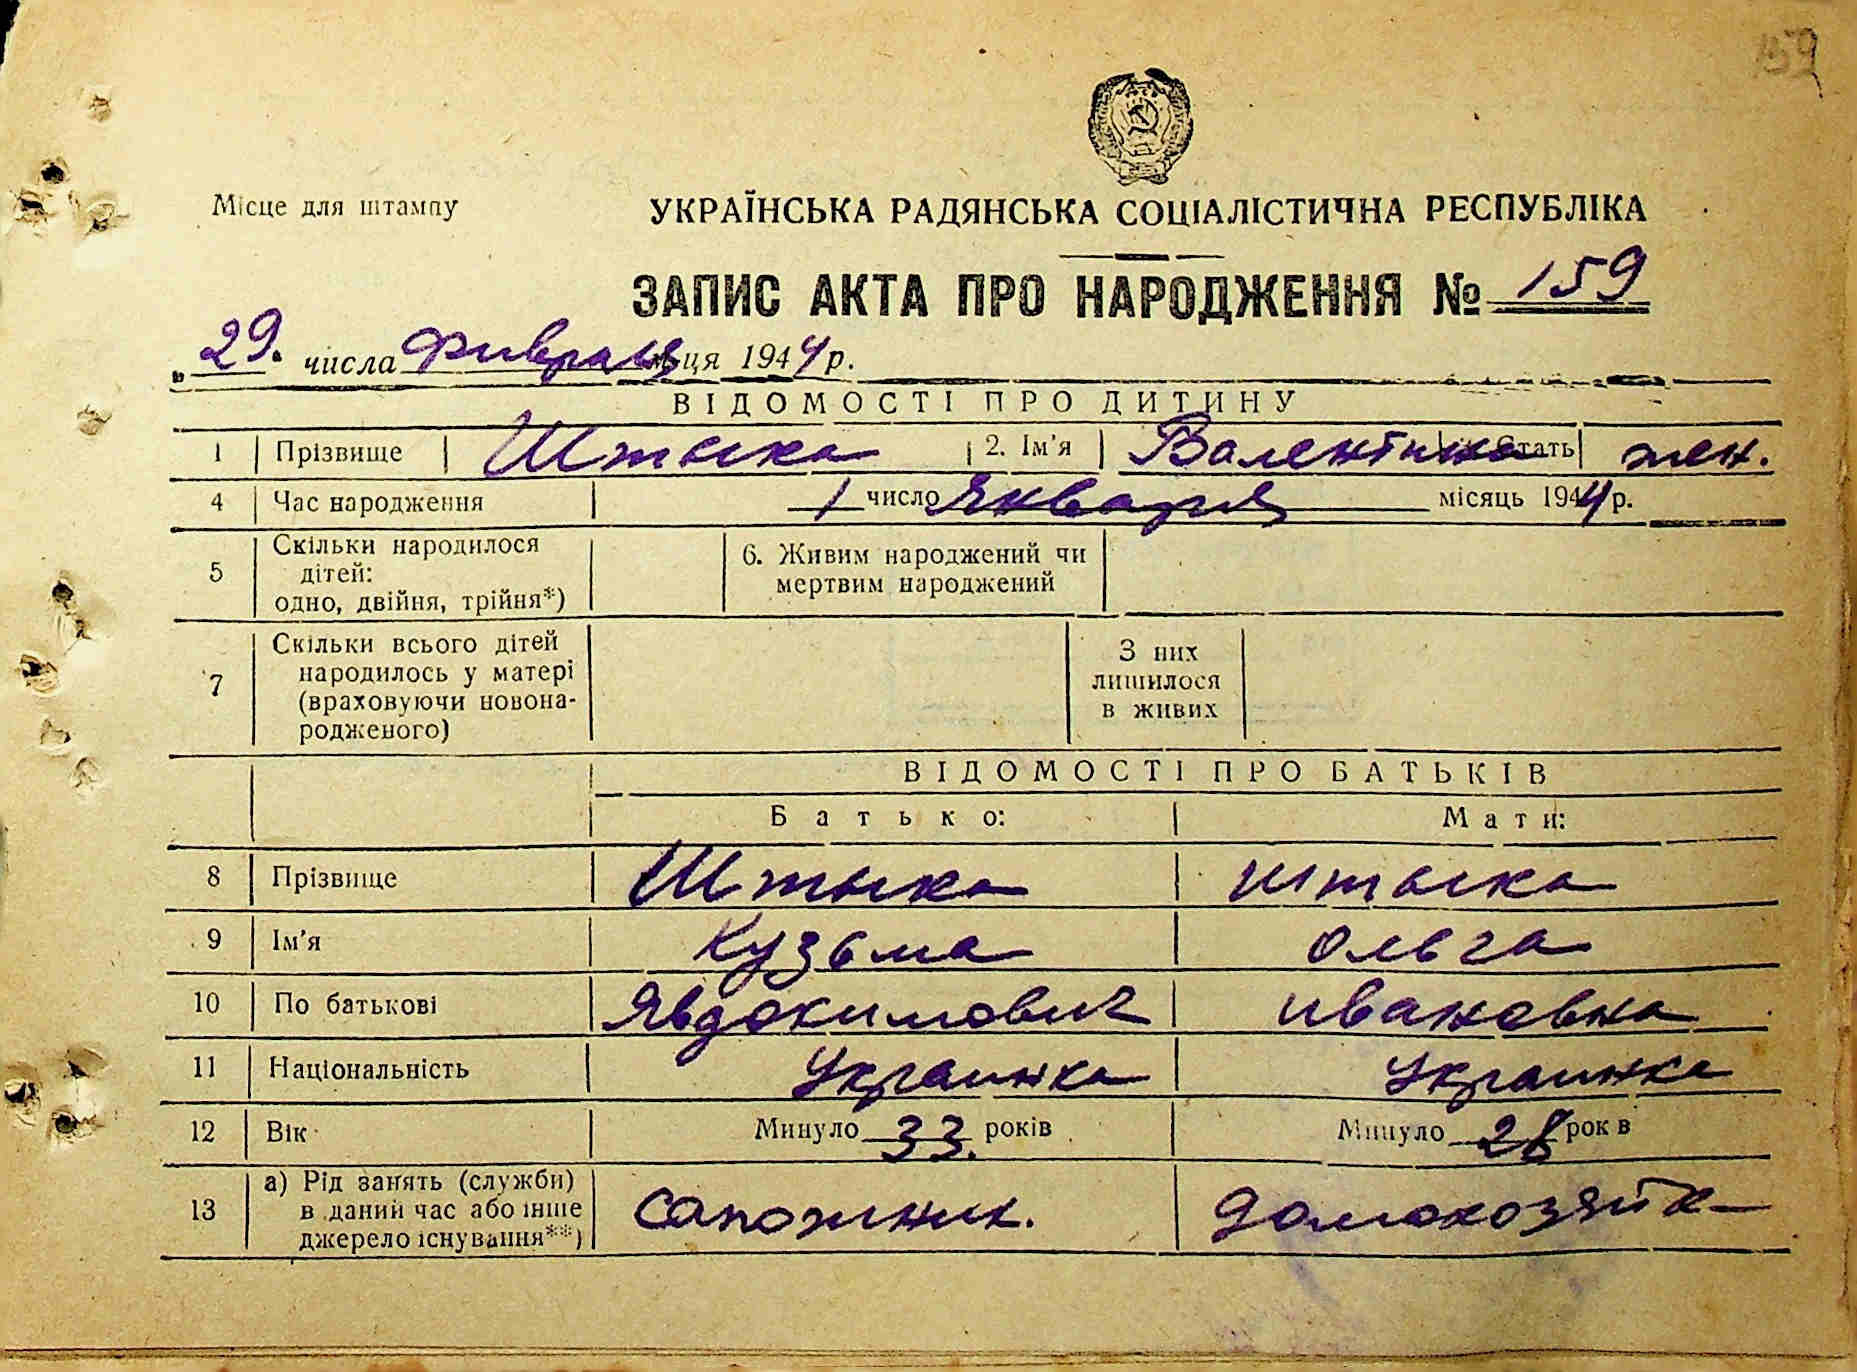 159
Місце для штампу
УКРАЇНСЬКА РАДЯНСЬКА СОЦІАЛІСТИЧНА РЕСПУБЛІКА
ЗАПИС АКТА ПРО НАРОДЖЕННЯ № 159
„ 29. числа Февраля місяця 1944 р.
ВІДОМОСТІ ПРО ДИТИНУ
1 Прізвище Штыка 2. Ім'я Валентина Стать жен.
4 Час народження 1 число Января місяць 1944 р.
5 Скільки народилося дітей: одно, двійня, трійня*) 6. Живим народжений чи мертвим народжений
7 Скільки всього дітей народилось у матері (враховуючи новона-родженого) З них лишилося в живих
ВІДОМОСТІ ПРО БАТЬКІВ
Батько: Мати:
8 Прізвище Штыка Штыка
9 Ім'я Кузьма Ольга
10 По батькові Явдокимович Ивановна
11 Національність Украинка Украинка
12 Вік Минуло 33 років Минуло 28 років
13 а) Рід занять (служби) в даний час або інше джерело існування**) Сапожник. Домохозяйка